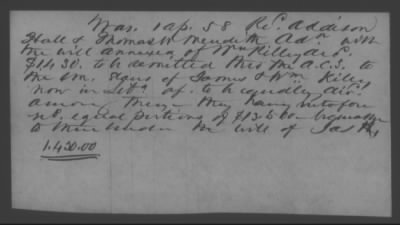 Mar. 1 ap. 58 Recd. Addison
Hall & Thomas W Meredith Adr. with
the will annexed of Wm Kelley decd.
$1430. to be remitted thro the A.C.S. to
the em. slaves of James & Wm Kelley
now in to be equally divd.
among them they having heretofore
equal portions of
to them under the will of Jas K.
1.430.00